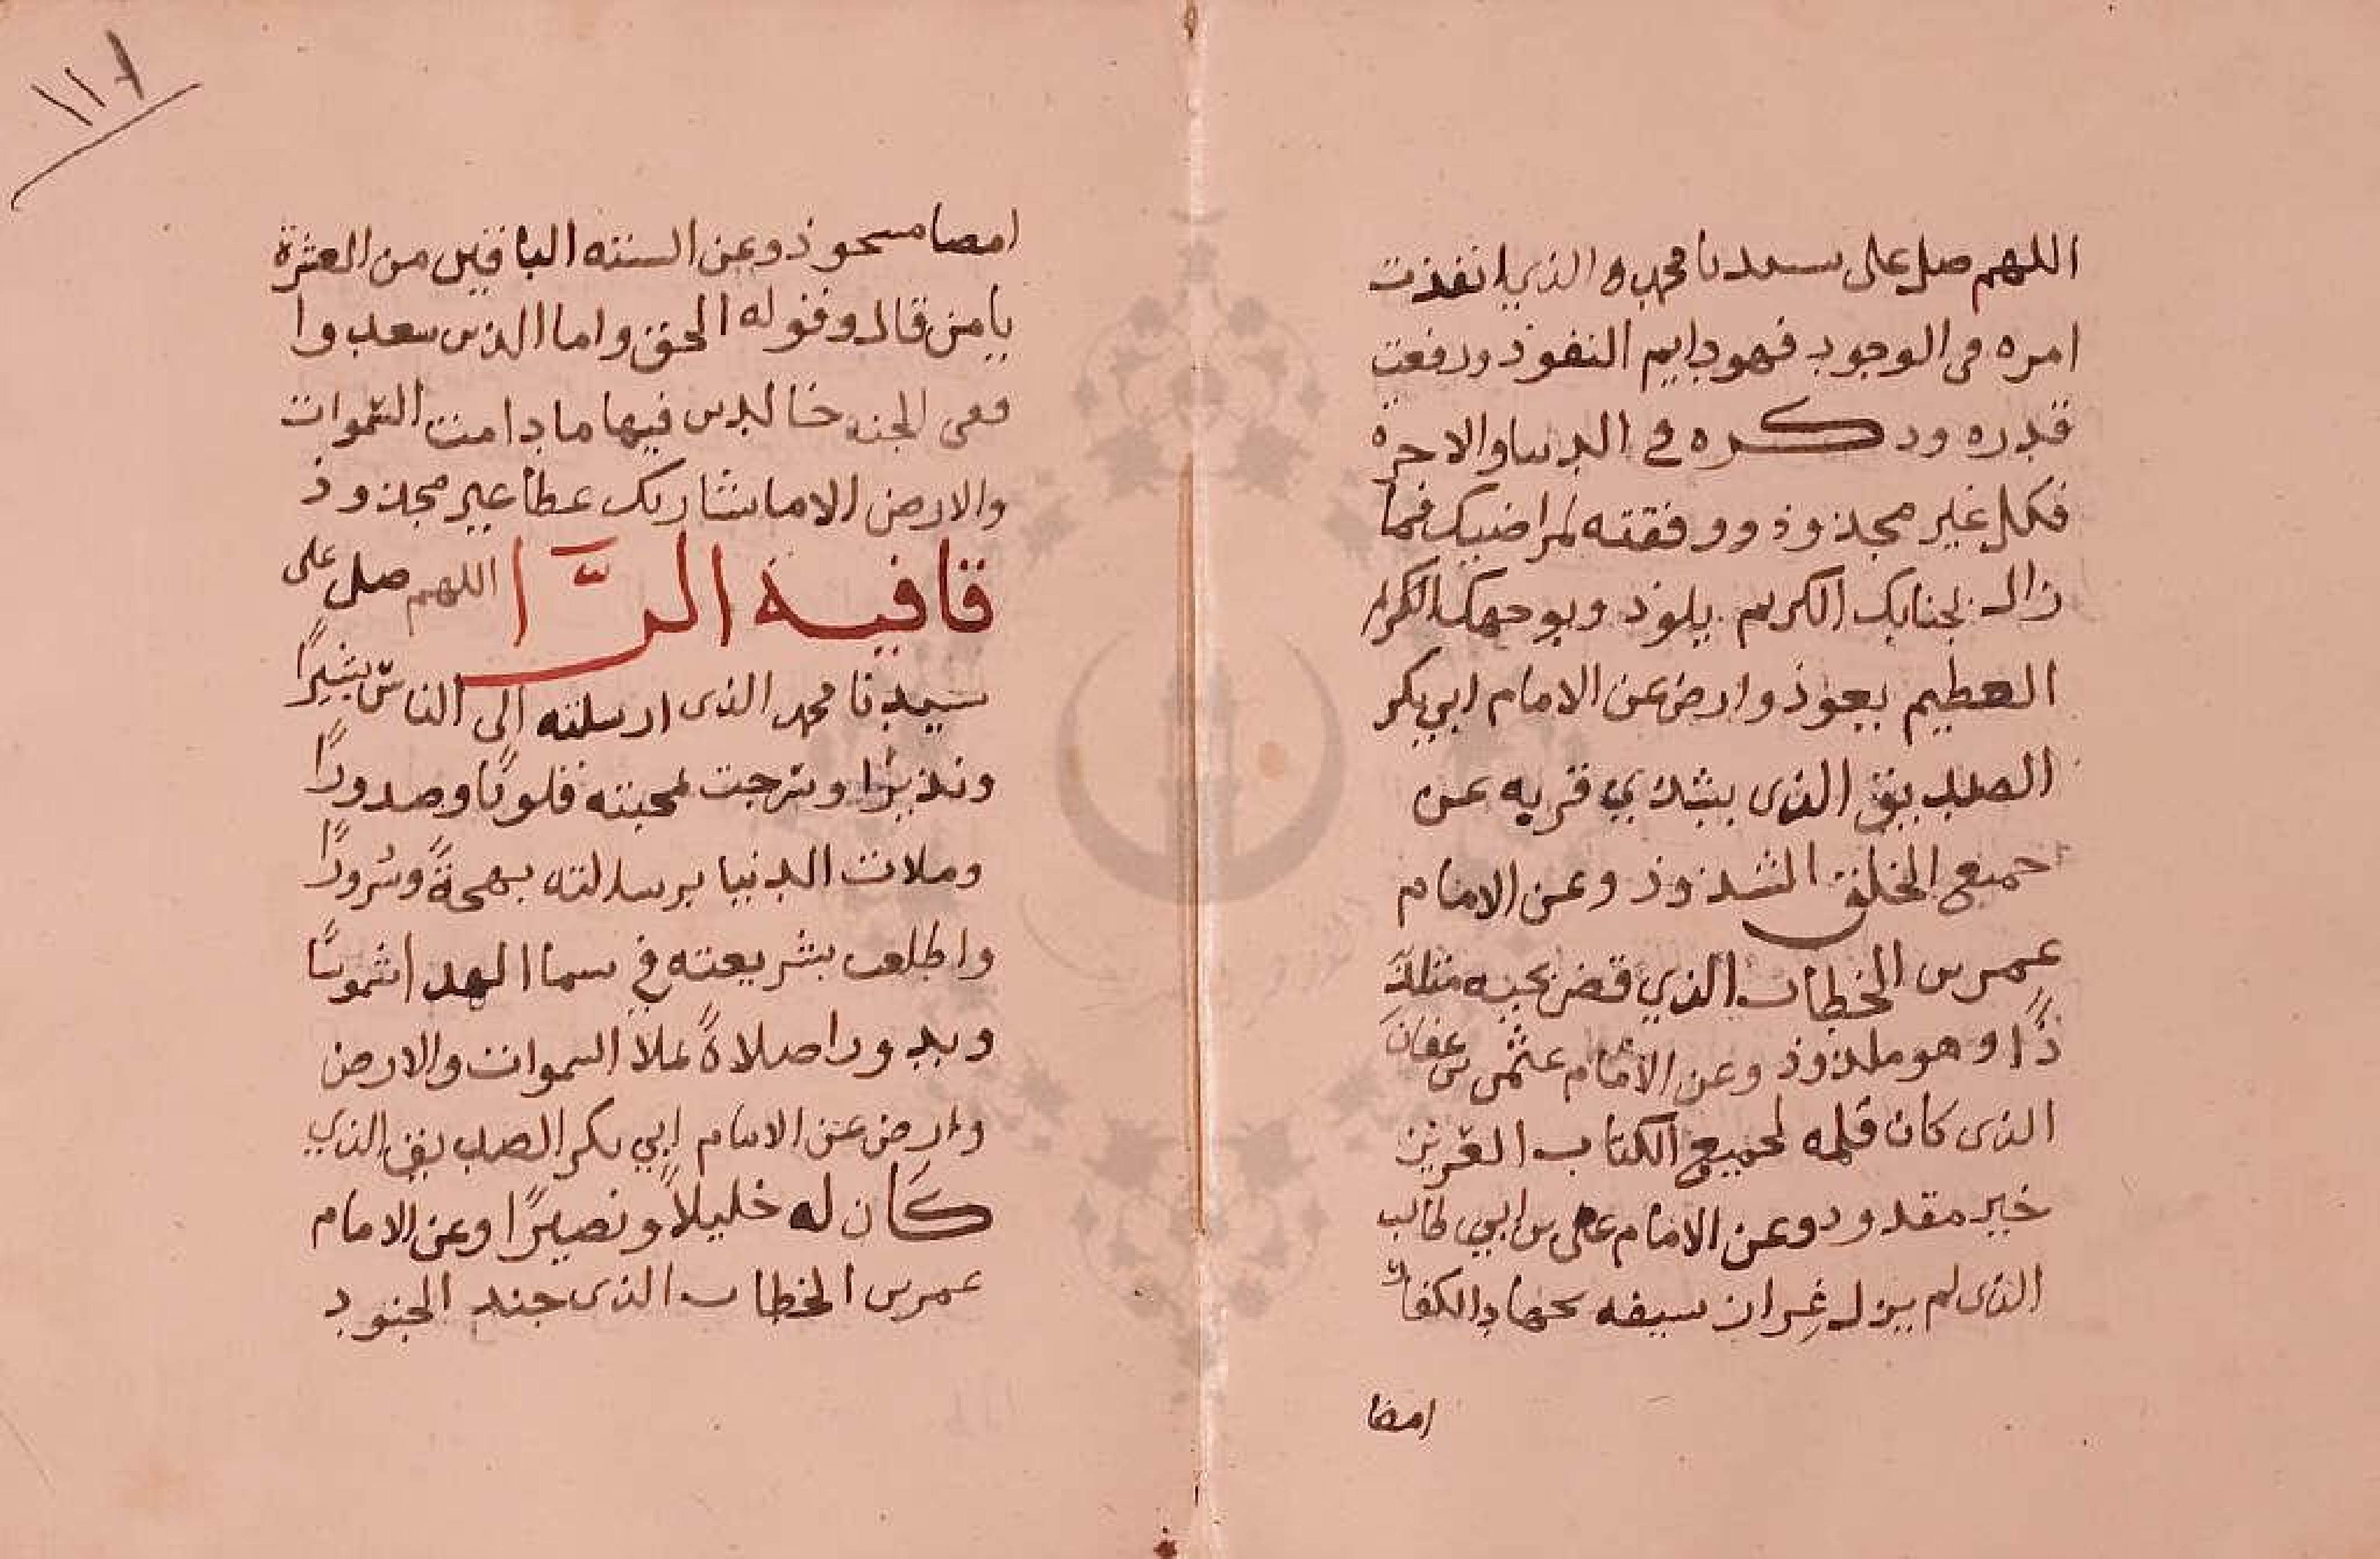 اللهم صل على سيدنا محمد الذي انفذت
امره في الوجود فهو دايم النفوذ ورفعت
قدره وذكره في الدنيا والاخرة
فكل غير مجذوذ ووفقته لمراضيك فما
زال بجنابك الكريم يلوذ وبوجهك الكرام
العظيم يعوذ وارض عن الامام ابي بكر
الصديق الذى بشذي قربه عن
جميع الخلق الشذوذ وعن الامام
عمر بن الخطاب الذي قضى نحبه متلذ
ذًا وهو ملذوذ وعن الامام عثمن بن عفان
الذى كان قلمه لجميع الكتاب العزيز
خير مقدود وعن الامام على بن ابي طالب
الذى لم يزل غران سيفه بجهاد الكفار
امضا
١١٨
امضا مسحوذ وعن الستة الباقين من العشرة
يا من قال وقوله الحق واما الذين سعدوا
ففى الجنة خالدين فيها ما دامت السموات
والارض الا ما شا ربك عطا غير مجذوذ
قافية الرّا اللهم صل على
سيدنا محمد الذى ارسلته الى الناس بشيرًا
ونذيرًا وشرحت لمحبته قلوبًا وصدورًا
وملات الدنيا برسالته بهجةً وسُرورًا
واطلعت بشريعته في سما الهدا شموسًا
وبدورا صلاةً تملا السموات والارض
وارض عن الامام ابي بكر الصديق الذي
كَان له خليلاً ونصيرًا وعن الامام
عمر بن الخطاب الذى جند الجنود